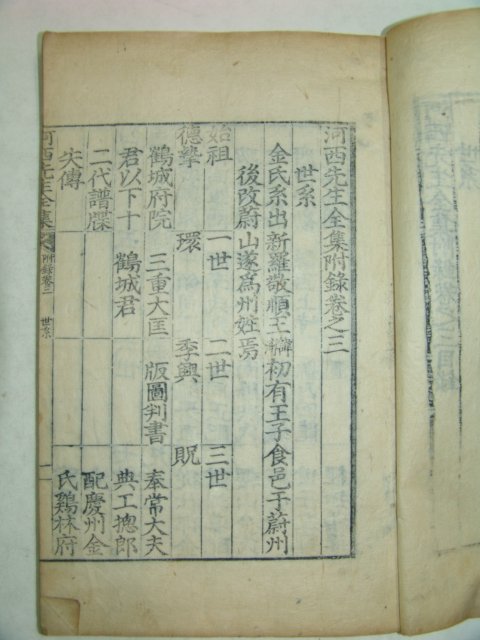 河西先生全集附錄卷之三
世系
金氏系出新羅敬順王初有王子食邑于蔚州
後改蔚山遂爲州姓焉
始祖 一世 二世 三世
德摯 環 季興 貺
鶴城府院 三重大匡 版圖判書 奉常大夫
君以下十 鶴城君 典工摠郎
二代譜牒 配慶州金
失傳 氏鷄林府
河西先生全集 附錄卷三 世系 一